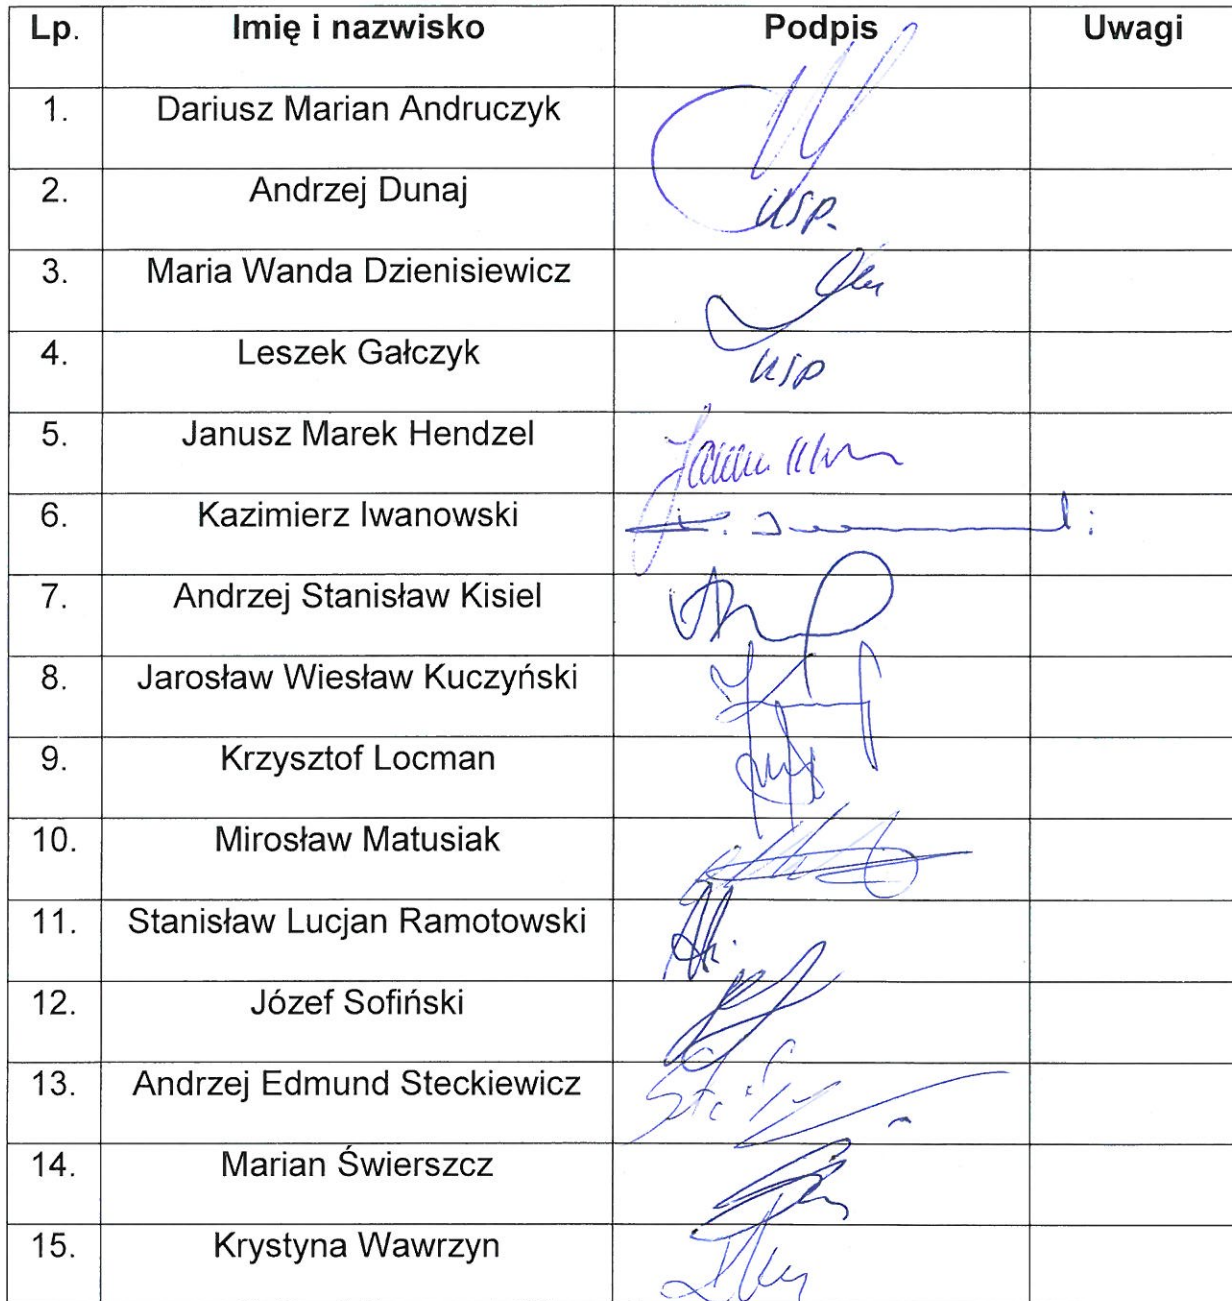 Lp. Imię i nazwisko Podpis Uwagi
1. Dariusz Marian Andruczyk
2. Andrzej Dunaj usp.
3. Maria Wanda Dzienisiewicz
4. Leszek Gałczyk usp
5. Janusz Marek Hendzel
6. Kazimierz Iwanowski
7. Andrzej Stanisław Kisiel
8. Jarosław Wiesław Kuczyński
9. Krzysztof Locman
10. Mirosław Matusiak
11. Stanisław Lucjan Ramotowski
12. Józef Sofiński
13. Andrzej Edmund Steckiewicz
14. Marian Świerszcz
15. Krystyna Wawrzyn